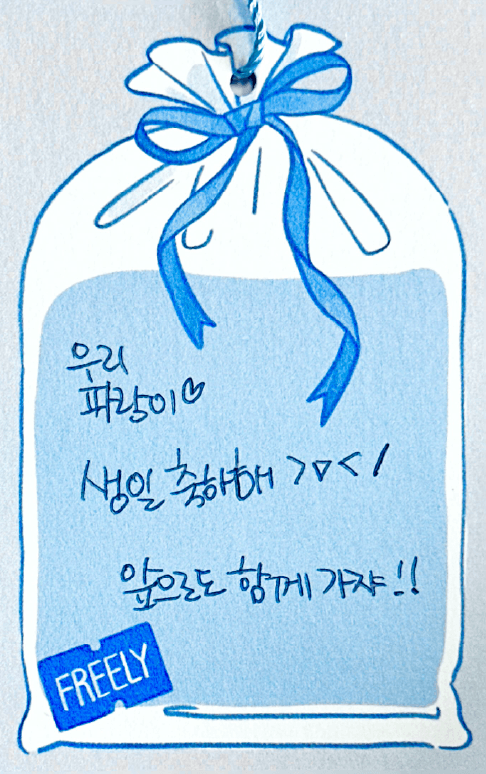 우리
파랑이♡
생일 축하해 >▽< /
앞으로도 함께 가쟈!!
FREELY